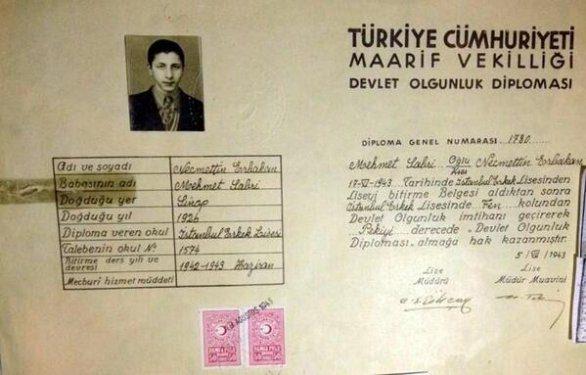 TÜRKİYE CÜMHURİYETİ
MAARİF VEKİLLİĞİ
DEVLET OLGUNLUK DİPLOMASI
DİPLOMA GENEL NUMARASI. 1780
Mehmet Sabri Oğlu Necmettin Erbakan
Kızı
17-VI-1943 Tarihinde İstanbul Erkek Lisesinden
Liseyi bitirme Belgesi aldıktan sonra
İstanbul Erkek Lisesinde Fen kolundan
Devlet Olgunluk imtihanı geçirerek
Pekiyi derecede Devlet Olgunluk
Diploması almağa hak kazanmıştır.
5/VII/1943
Lise Müdürü
Lise Müdür Muavini
Adı ve soyadı Necmettin Erbakan
Babasının adı Mehmet Sabri
Doğduğu yer Sinop
Doğduğu yıl 1926
Diploma veren okul İstanbul Erkek Lisesi
Talebenin okul № 1574
Bitirme ders yılı ve devresi 1942-1943 Haziran
Mecburî hizmet müddeti